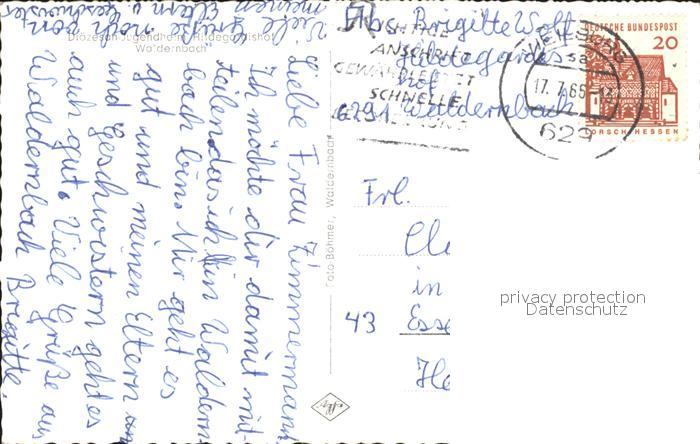 Diözesan Jugendheim Hildegardishof
Waldernbach
Liebe Frau Zimmermann
Ich möchte dir damit mit-
teilen das ich in Waldern
bach bin. Mir geht es
gut und meinen Eltern un
und Geschwistern geht es
auch gut. Viele Grüße aus
Waldernbach Brigitte.
Viele Grüße noch von
meinen Eltern u Geschwister
Foto-Böhmer, Waldernbach
Abs. Brigitte Wolf
Hildegardes
hof
6291 Waldernbach
RICHTIGE
ANSCHRIFT
GEWÄHRLEISTET
SCHNELLE
WEILBURG
17.7.65-
629
DEUTSCHE BUNDESPOST
20
LORSCH HESSEN
Frl.
Cle
in
43 Esse
He
privacy protection
Datenschutz